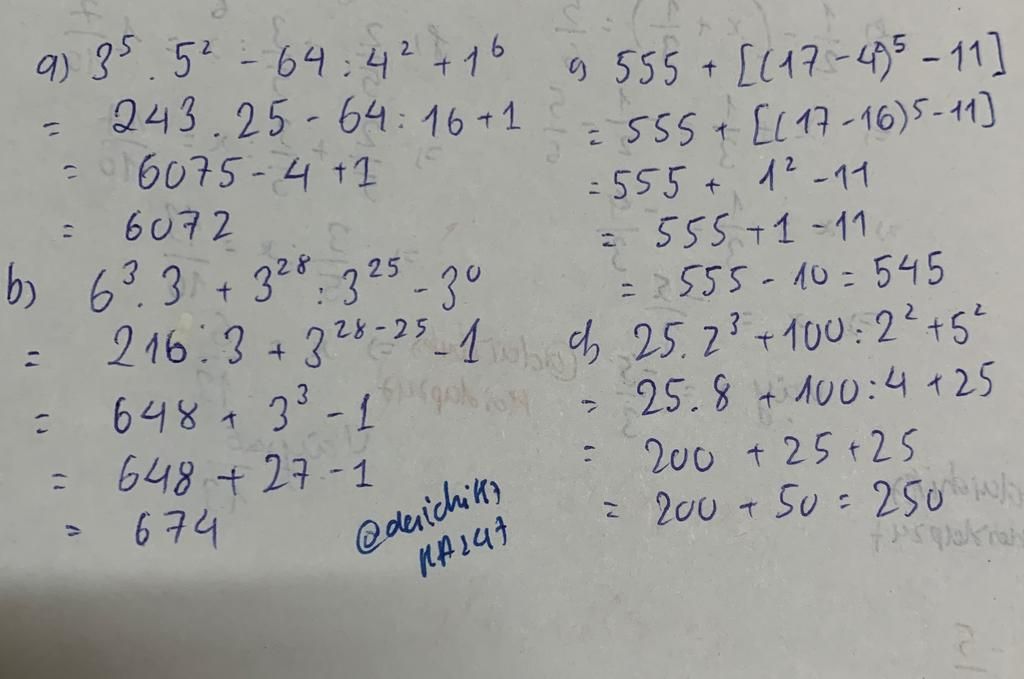 a) 3⁵ . 5² - 64 : 4² + 1⁶
= 243 . 25 - 64 : 16 + 1
= 6075 - 4 + 1
= 6072
b) 6³ . 3 + 3²⁸ : 3²⁵ - 3⁰
= 216 . 3 + 3²⁸⁻²⁵ - 1
= 648 + 3³ - 1
= 648 + 27 - 1
= 674
c) 555 + [(17 - 4)⁵ - 11]
= 555 + [(17 - 16)⁵ - 11]
= 555 + 1² - 11
= 555 + 1 - 11
= 555 - 10 = 545
d) 25 . 2³ + 100 : 2² + 5²
= 25 . 8 + 100 : 4 + 25
= 200 + 25 + 25
= 200 + 50 = 250